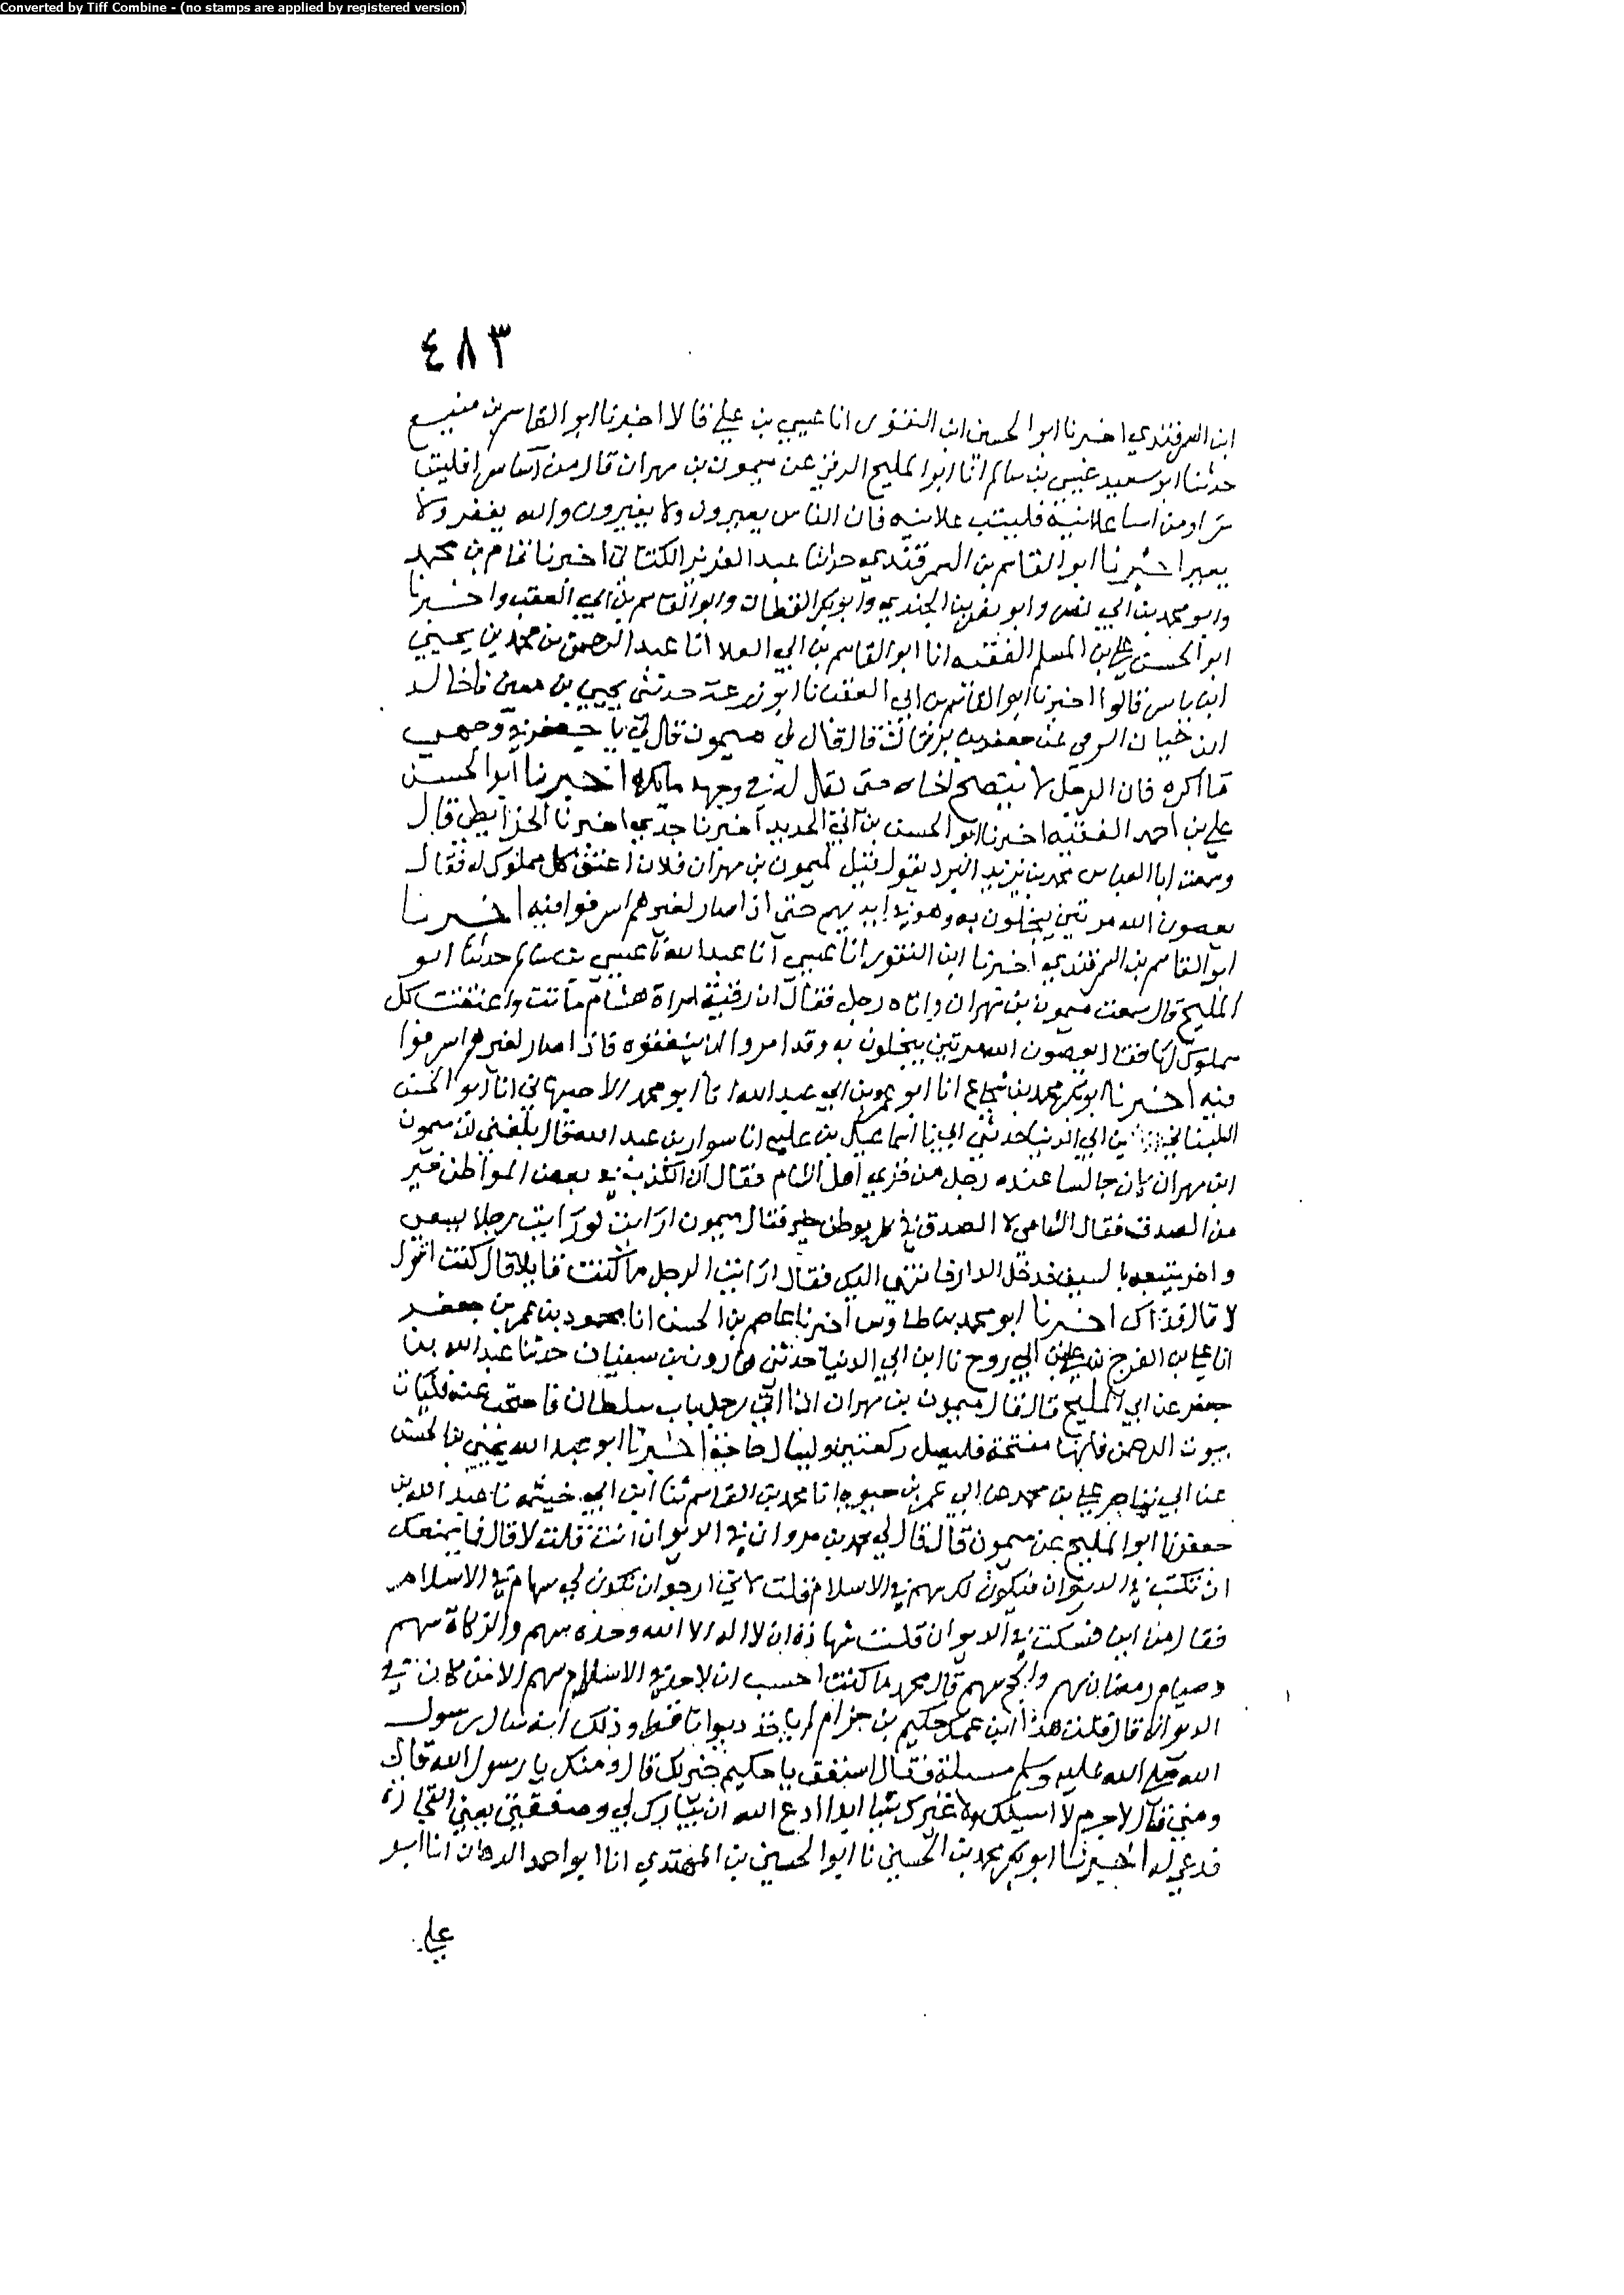 Converted by Tiff Combine - (no stamps are applied by registered version)
٤٨٣
ابن السمرقندي اخبرنا ابو الحسين ابن النقور انا عيسى بن علي قالا اخبرنا ابو القاسم بن منيع
حدثنا ابو سعيد عيسى بن سالم انا ابو المليح الرقي عن ميمون بن مهران قال من اسا سرا فليتب
سرا ومن اسا علانية فليتب علانيه فان الناس يعيرون ولا يغفرون والله يغفر ولا
يعير اخبرنا ابو القاسم بن السمرقندي حدثنا عبد العزيز الكتاني اخبرنا تمام بن محمد
وابو محمد بن ابي نصر وابو نصر بن الجندي وابو بكر القطان وابو القاسم بن ابي العقب واخبرنا
ابو الحسن علي بن المسلم الفقيه انا ابو القاسم بن ابي العلا انا عبد الرحمن بن محمد بن يحيى
ابن ياسر قالوا اخبرنا ابو القاسم بن ابي العقب نا ابو زرعة حدثني يحيى بن معين نا خالد
ابن حيان الرقي عن جعفر بن برقان قال قال لي ميمون قال لي يا جعفر في وجهي
ما اكره فان الرجل لا ينصح اخاه حتى يقال له في وجهه مايكره اخبرنا ابو الحسن
علي بن احمد الفقيه اخبرنا ابو الحسن بن ابي الحديد اخبرنا جدي اخبرنا الخرايطي قال
وسمعت ابا العباس محمد بن يزيد المبرد يقول قيل لميمون بن مهران فلان اعتق كل مملوك له فقال
يعصون الله مرتين يبخلون به وهو في ايديهم حتى اذا صار لغيرهم اسرفوا فيه اخبرنا
ابو القاسم بن السمرقندي اخبرنا ابن النقور انا عيسى انا عبد الله نا عيسى بن سالم حدثنا ابو
المليح قال سمعت ميمون بن مهران واتاه رجل فقال ان رقية امراة هشام ماتت واعتقت كل
مملوك لها فقال يعصون الله مرتين يبخلون به وقد امروا ان ينفقوه فاذا صار لغيرهم اسرفوا
فيه اخبرنا ابو بكر محمد بن شجاع انا ابو عمرو بن ابي عبد الله انا ابو محمد الاصبهاني انا ابو الحسن
اللبناني بن ابي الدنيا حدثني ابي نا اسماعيل بن عليه انا سوار بن عبد الله قال بلغني ان ميمون
ابن مهران كان جالسا عنده رجل من قرى اهل الشام فقال ان الكذب في بعض المواطن خير
من الصدق فقال الشامي لا الصدق في كل موطن خير فقال ميمون ارايت لو رايت رجلا يسعى
واخر يتبعه بالسيف فدخل الدار فانتهى اليك فقال ارايت الرجل ما كنت قايلا قال كنت اقول
لا قال فذاك اخبرنا ابو محمد بن طاوس اخبرنا عاصم بن الحسن انا محمود بن عمر بن جعفر
انا علي بن الفرج بن علي بن ابي روح نا ابن ابي الدنيا حدثني هارون بن سفيان حدثنا عبد الله بن
جعفر عن ابي المليح قال قال ميمون بن مهران اذا اتى رجل باب سلطان فاحتجب عنه فليات
بيوت الرحمن فانها مفتحة فليصل ركعتين وليسال حاجته اخبرنا ابو عبد الله يحيى بن الحسن
عن ابي تمام علي بن محمد عن ابي عمر بن حيويه انا محمد بن القاسم نا ابن ابي خيثمه نا عبد الله بن
جعفر نا ابو المليح عن ميمون قال قال لي محمد بن مروان في الديوان انت قلت لا قال فما يمنعك
ان تكتب في الديوان فيكون لك سهم في الاسلام قلت اني ارجو ان تكون لي سهام في الاسلام
فقال من اين ولست في الديوان قلت شهادة ان لا اله الا الله وحده سهم والزكاة سهم
وصيام رمضان سهم والحج سهم قال محمد ما كنت احسب ان لاحد في الاسلام سهم الا من كان في
الديوان قال قلت هذا ابن عمك حكيم بن حزام لم ياخذ ديوانا قط وذلك انه سال رسول
الله صلى الله عليه وسلم مسلة فقال استعف يا حكيم خير لك قال ومنك يا رسول الله قال
ومني قال لا جرم لا اسيلك ولا غيرك شيا ابدا ادع الله ان يبارك لي وصفقتي يعني التجارة
فدعى له اخبرنا ابو بكر محمد بن الحسين نا ابو الحسين بن المهتدي انا ابو احمد الدهان انا ابو
علي